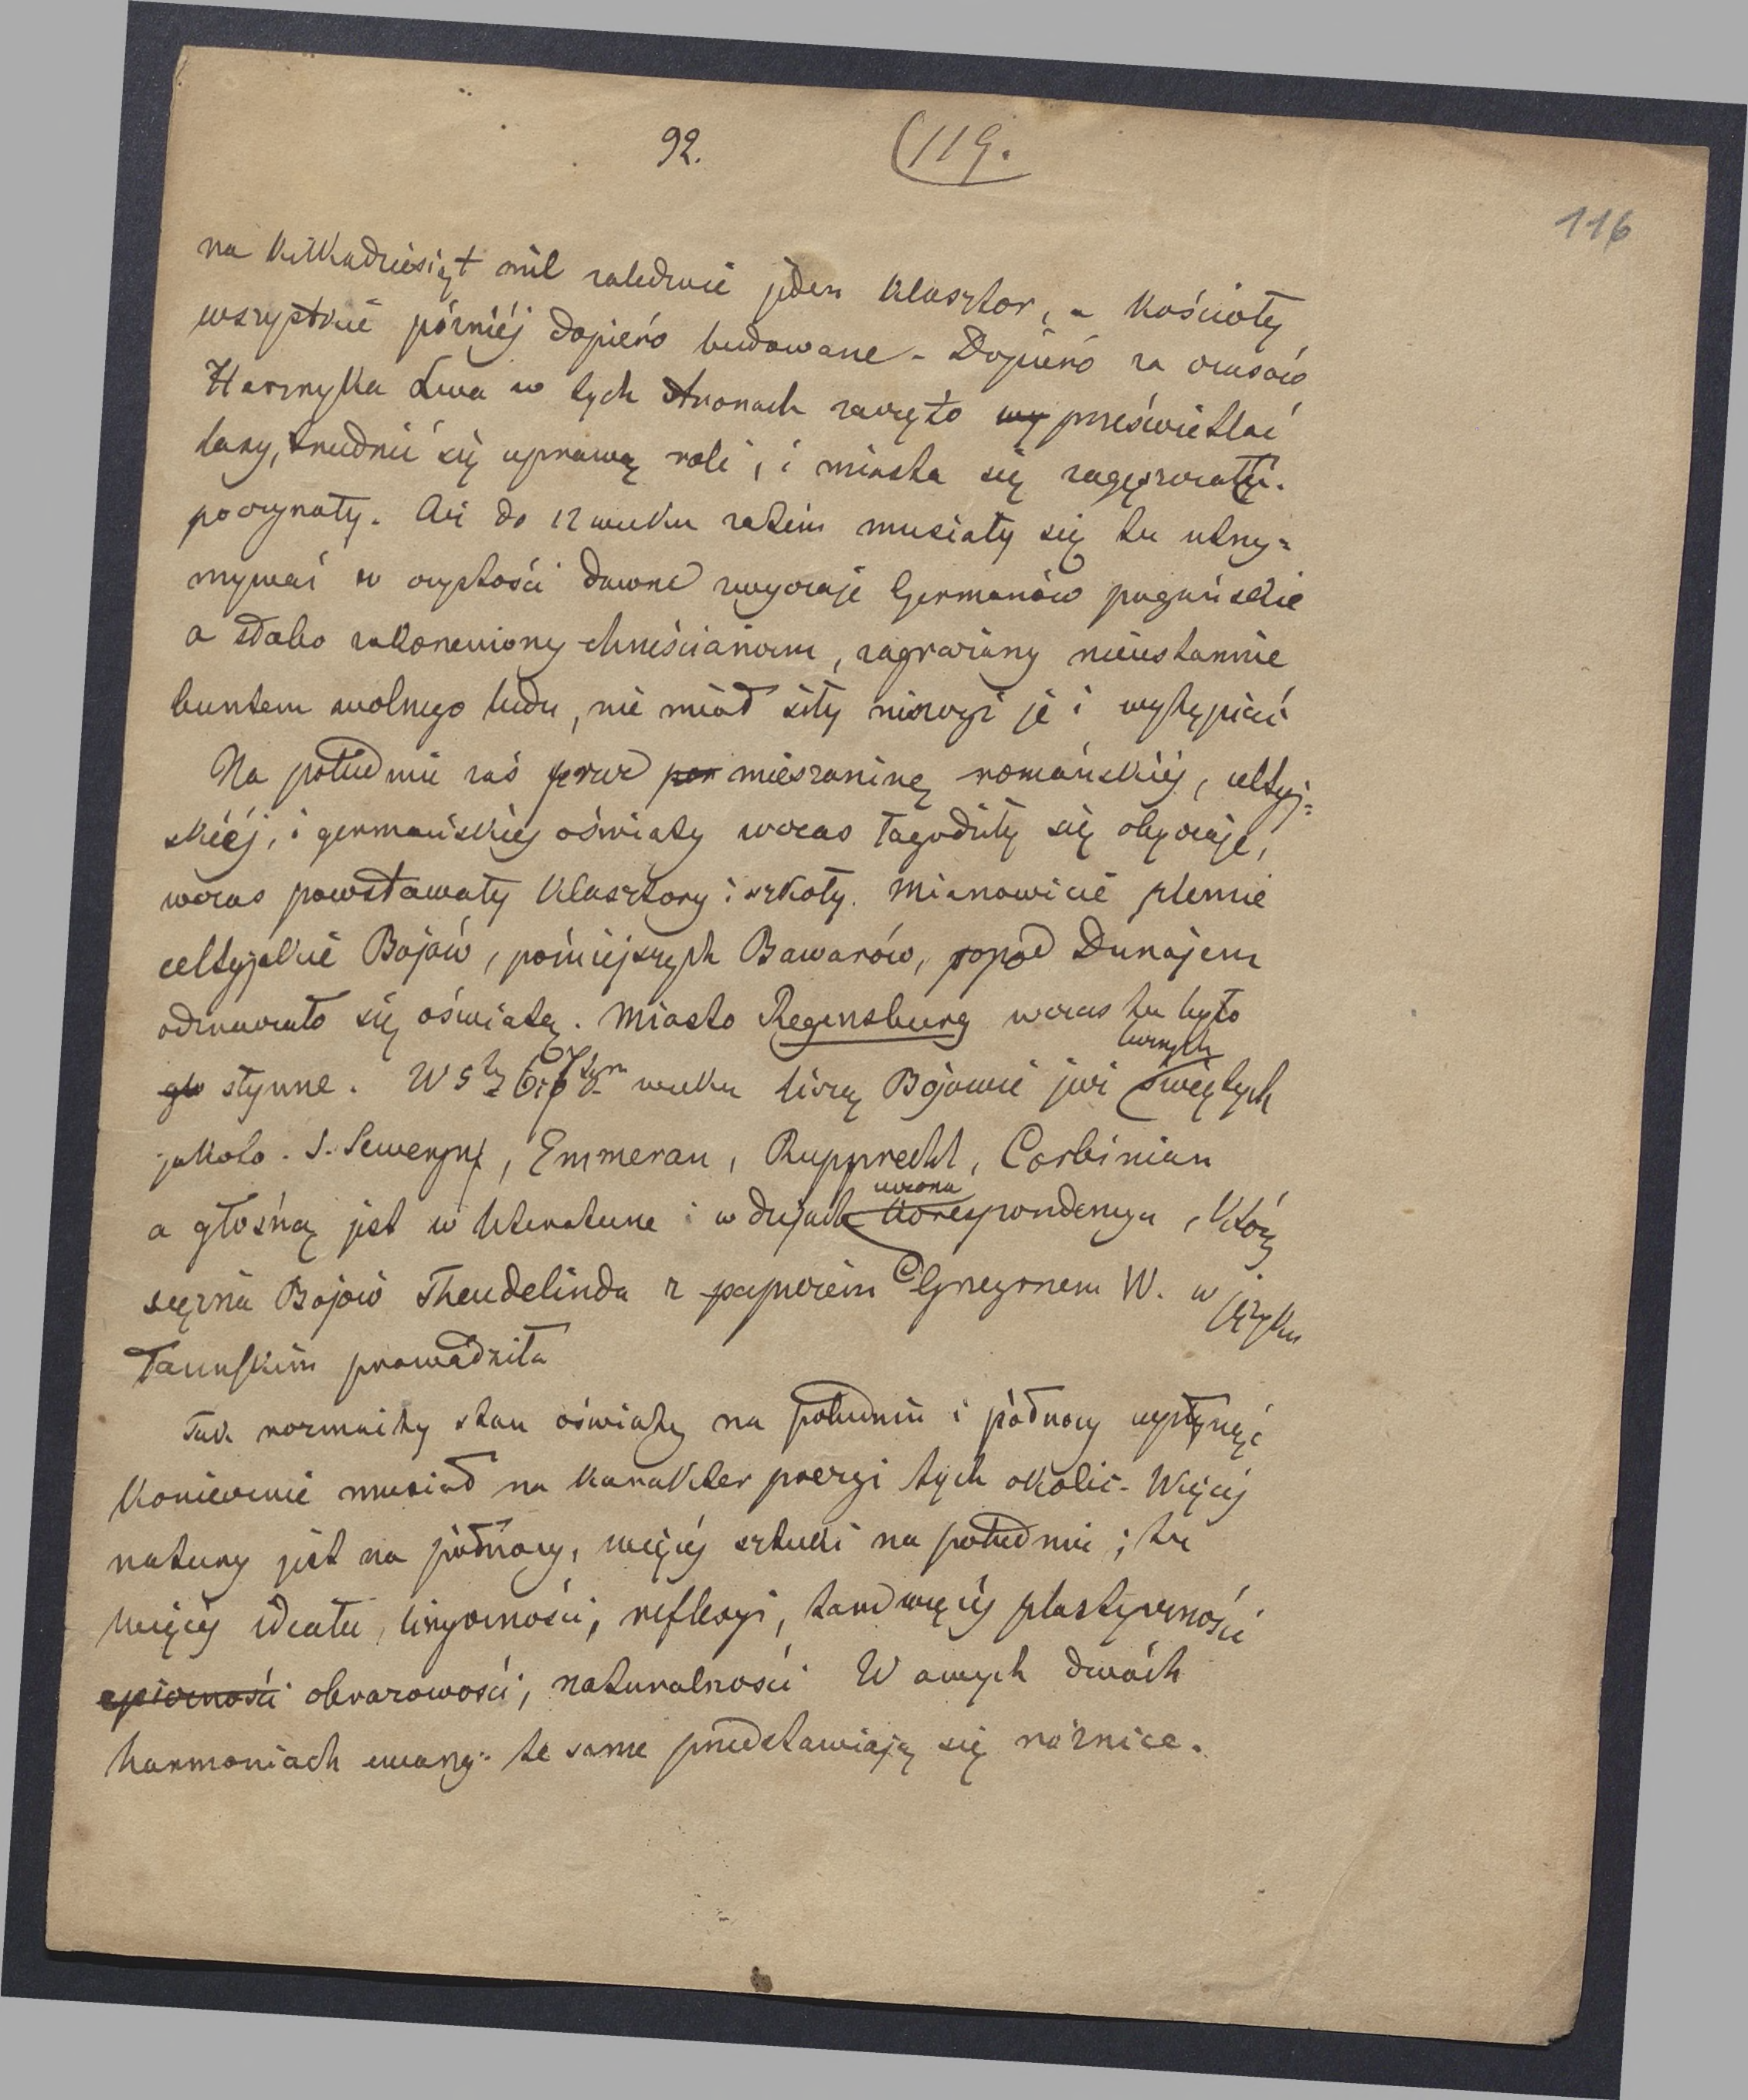 92.
(119.
116
na kilkadziesiąt mil zaledwie jeden klasztor, a kościoły
wszystkie później dopiero budowane - Dopiero za czasów
Henryka Lwa w tych stronach zaczęto wy prześwietlać
lasy, trudnić się uprawą roli, i miasta się zagęszczały.
poczynały. Aż do 12 wieku zatem musiały się tu utrzy=
mywać w czystości dawne zwyczaje Germanów pogańskie
a słabo zakorzeniony chrześcianizm, zagrażany nieustannie
buntem wolnego ludu, nie miał siły niszczyć je i wytępiać
Na południu zaś przez mieszaninę romańskiéj, celtyj=
skiéj, i germańskiéj oświaty wczas łagodziły się obyczaje,
wczas powstawały klasztory i szkoły. Mianowicie plemie
celtyjskie Bojów, późniejszych Bawarów, popod Dunajem
odznaczało się oświatą. Miasto Regensburg wczas tu było
gło słynne. W 5tym 6 i 7mym wieku liczą Bojowie już świętych
licznych
jakoto. S. Seweryn, Emmeran, Rupprecht, Corbinian
a głośną jest w literaturze i w dziejach korespondencya, którą
uczona
księżna Bojów Theudelinda z papieżem Grzegorzem W. w języku
łacińskim prowadziła
Tak rozmaity stan oświaty na południu i północy wpłynąć
koniecznie musiał na karakter poezyi tych okolic. Więcéj
natury jest na północy, więcéj sztuki na południu; tu
więcéj ideału, liryczności, reflexyi, tam więcéj plastyczności
epiczności obrazowości, naturalności W owych dwóch
harmoniach ewang. te same przedstawiają się róznice.